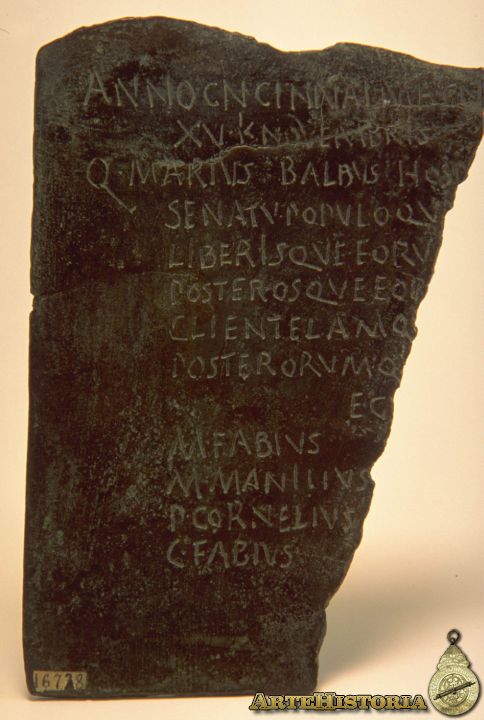 ANNO CN CINNAI MAGN
XV·K·NOVEMBRIS
Q·MARIVS BALBVS HOSP
SENATV·POPVLOQV
LIBERISQVE EORV
POSTEROSQVE EOR
CLIENTELAMQ
POSTERORVMQ
EG
M·FABIVS
M·MANILIVS
P·CORNELIVS
C·FABIVS
16738
ARTEHISTORIA